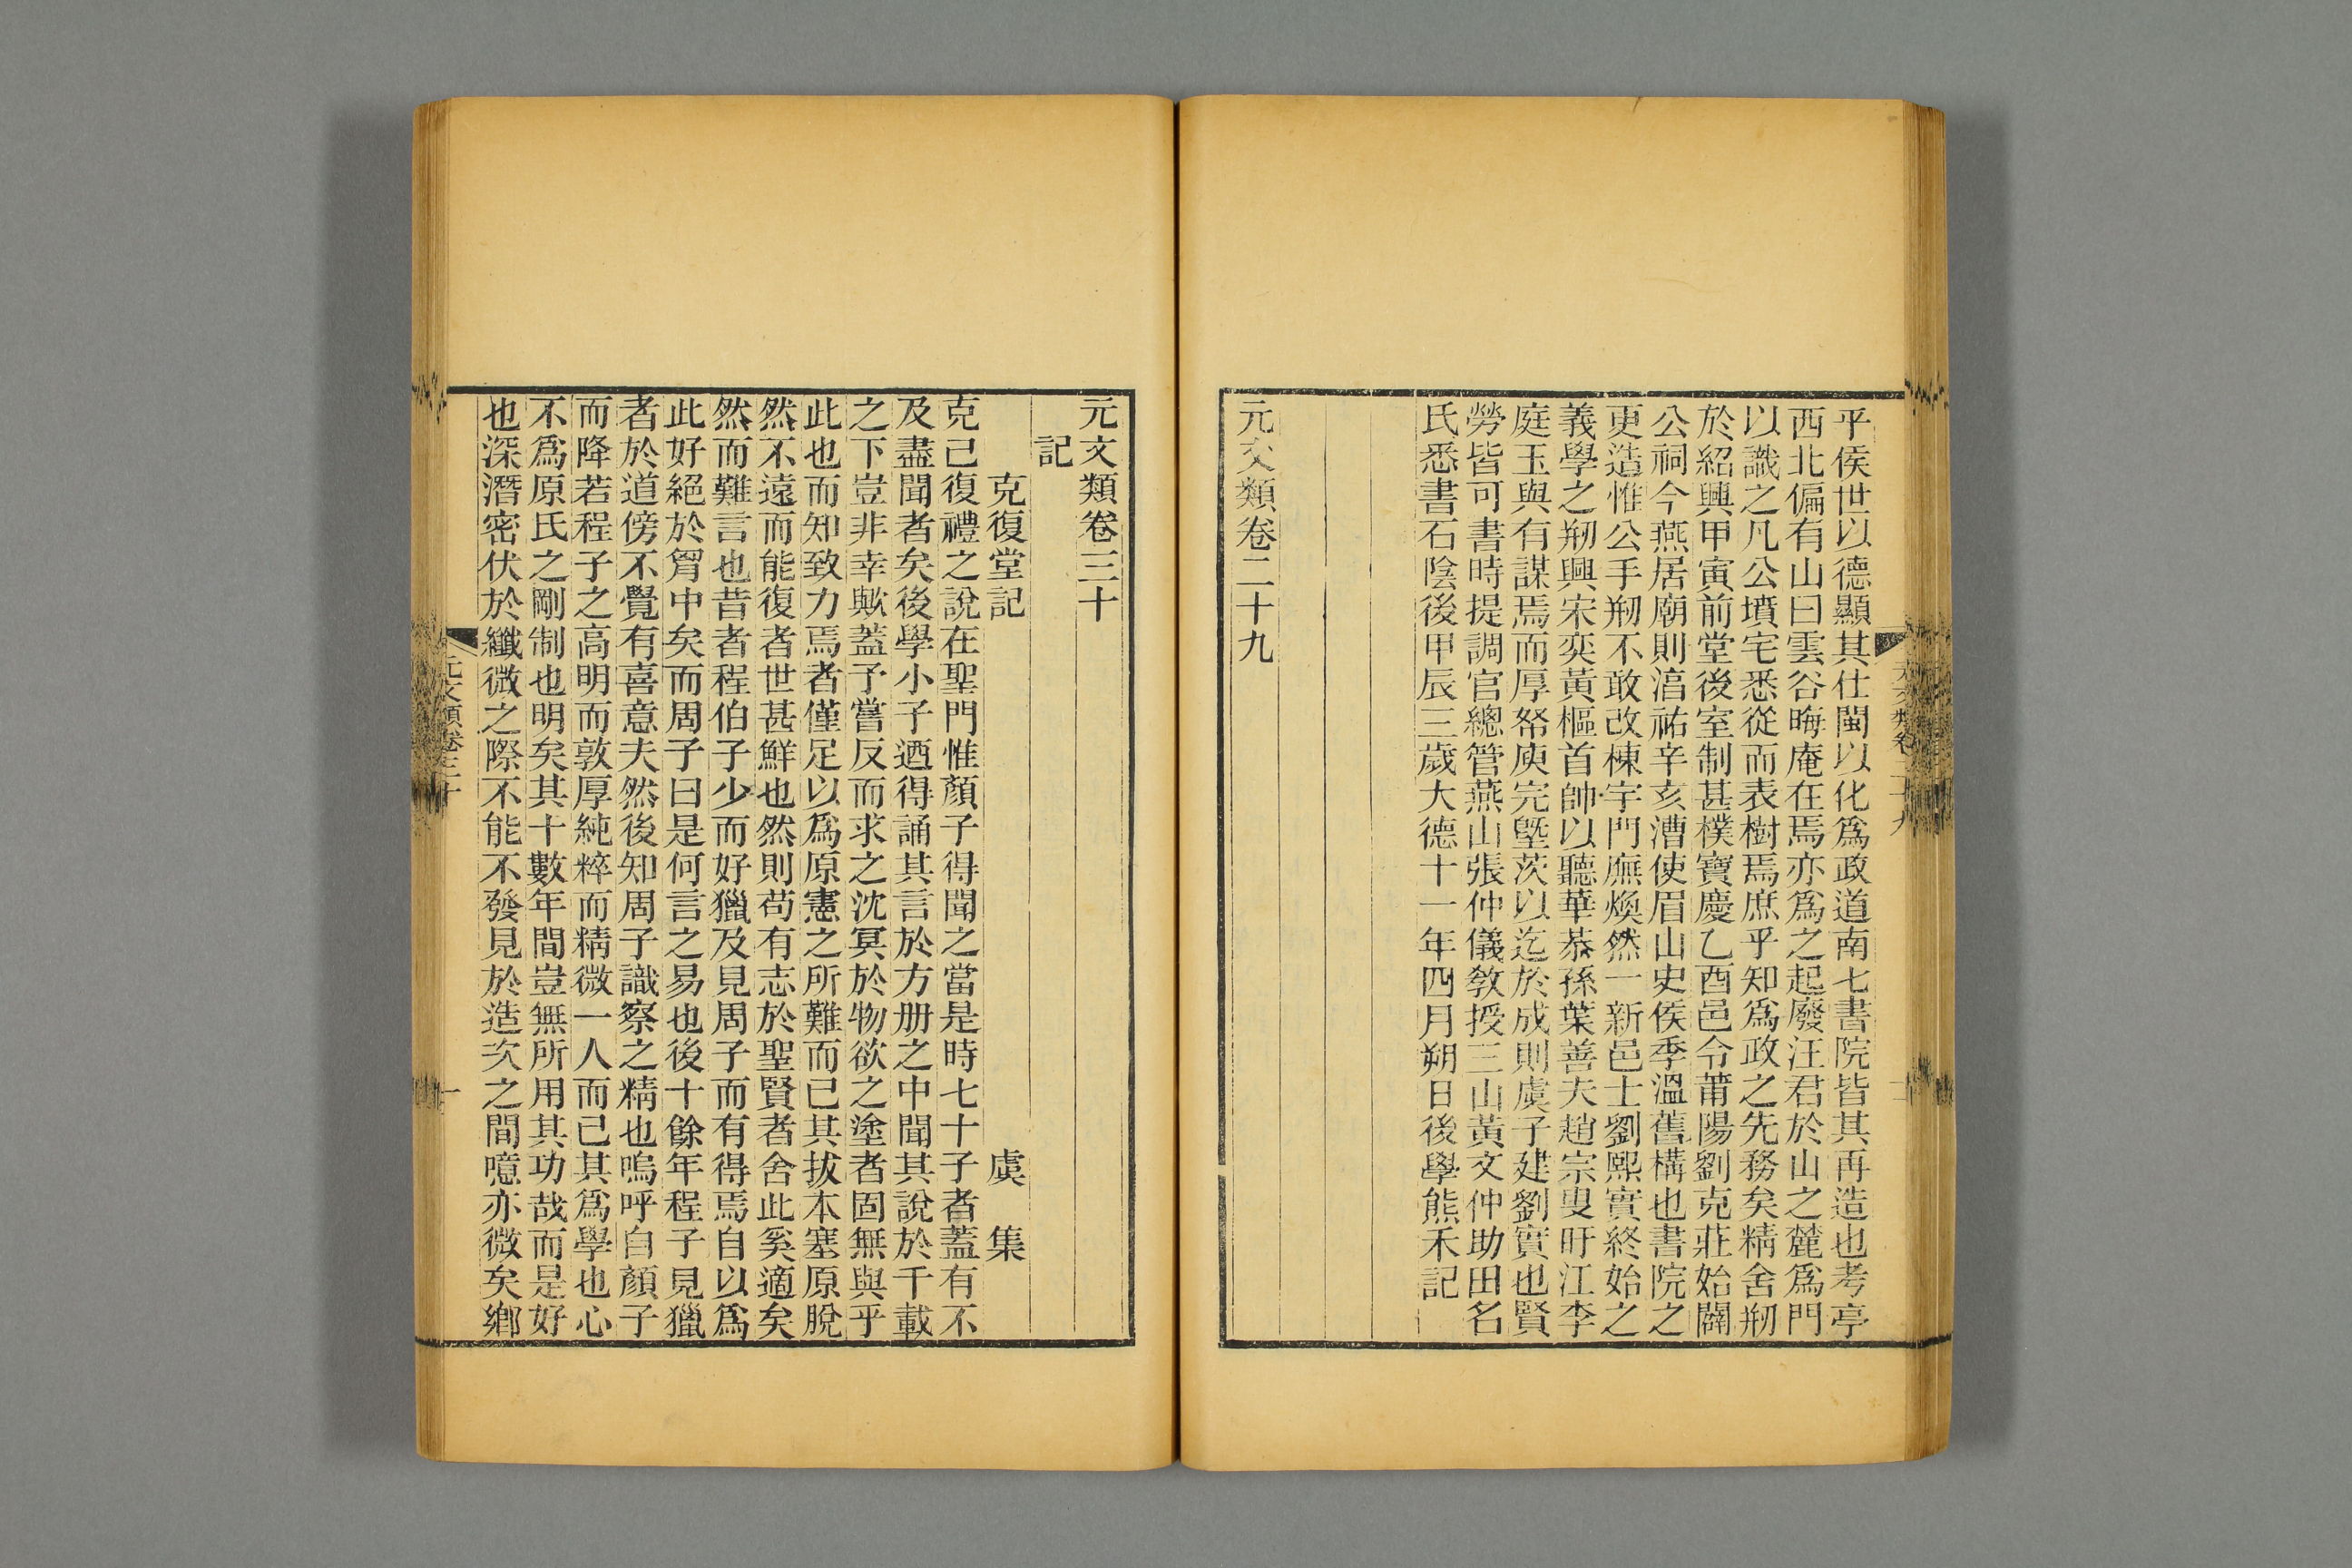 平侯世以德顯其仕閩以化爲政道南七書院皆其再造也考亭
西北偏有山曰雲谷晦庵在焉亦爲之起廢汪君於山之麓爲門
以識之凡公墳宅悉從而表樹焉庶乎知爲政之先務矣精舍剏
於紹興甲寅前堂後室制甚樸寶慶乙酉邑令莆陽劉克莊始闢
公祠今燕居廟則湻祐辛亥漕使眉山史侯季溫舊構也書院之
更造惟公手剏不敢改棟宇門廡煥然一新邑士劉熙實終始之
義學之剏興宋奕黃樞首帥以聽華恭孫葉善夫趙宗叟吁江李
庭玉與有謀焉而厚帑庾完墍茨以迄於成則虞子建劉實也賢
勞皆可書時提調官總管燕山張仲儀敎授三山黃文仲助田名
氏悉書石陰後甲辰三歲大德十一年四月朔日後學熊禾記
元文類卷二十九
元文類卷三十
記
克復堂記 虞集
克己復禮之說在聖門惟顏子得聞之當是時七十子者蓋有不
及盡聞者矣後學小子迺得誦其言於方册之中聞其說於千載
之下豈非幸歟蓋予嘗反而求之沈冥於物欲之塗者固無與乎
此也而知致力焉者僅足以爲原憲之所難而已其拔本塞原脫
然不遠而能復者世甚鮮也然則苟有志於聖賢者舍此奚適矣
然而難言也昔者程伯子少而好獵及見周子而有得焉自以爲
此好絕於胷中矣而周子曰是何言之易也後十餘年程子見獵
者於道傍不覺有喜意夫然後知周子識察之精也嗚呼自顏子
而降若程子之高明而敦厚純粹而精微一人而已其爲學也心
不爲原氏之剛制也明矣其十數年間豈無所用其功哉而是好
也深潛密伏於纖微之際不能不發見於造次之間噫亦微矣鄉
元文類卷三十
一